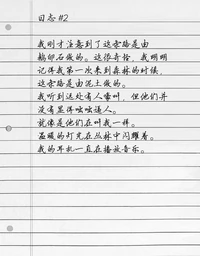 日志 #2
我刚才注意到了这条路是由
鹅卵石做的。这很奇怪，我明明
记得我第一次来到森林的时候，
这条路是由泥土做的。
我听到远处有人尖叫，但他们并
没有显得咄咄逼人。
就像是他们在叫我一样。
温暖的灯光在丛林中闪耀着。
我的耳机一直在播放音乐。